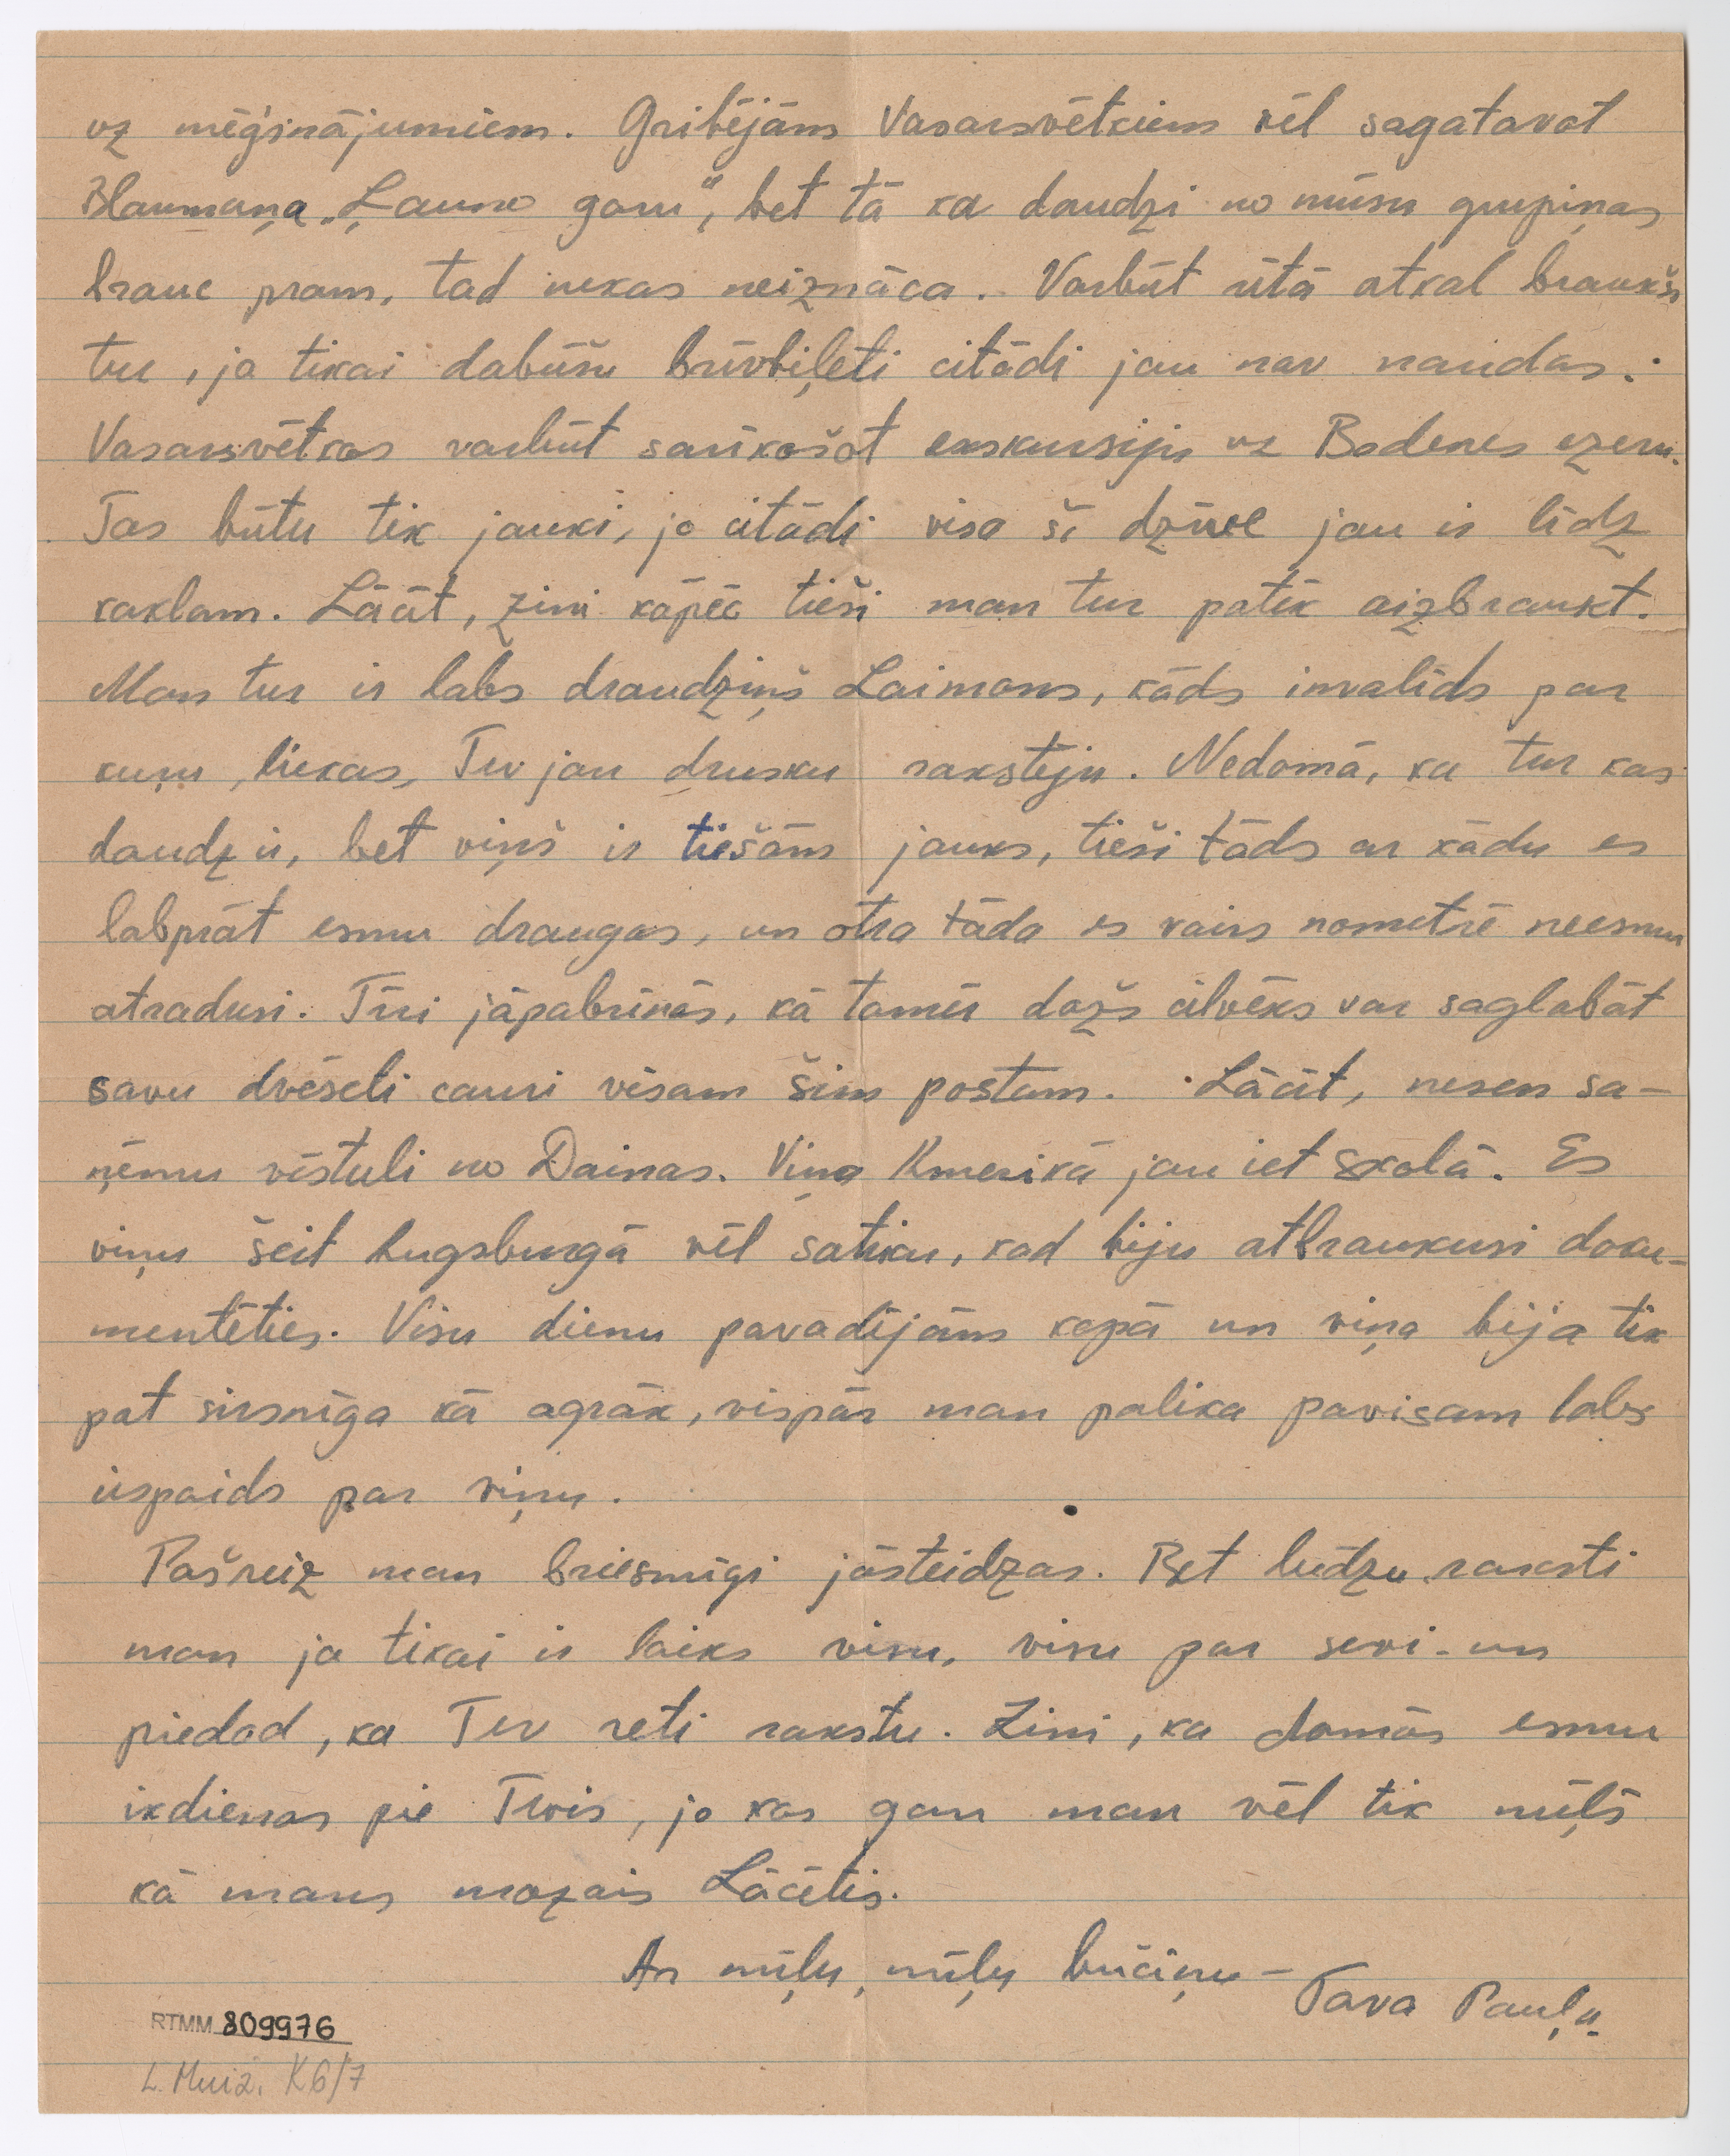 uz mēģinājumiem. Gribējām Vasarsvētkiem vēl sagatavot
Blaumaņa „Ļauno garu“, bet tā kā daudzi no mūsu grupiņas
brauc prom, tad nekas neiznāca. Varbūt rītā atkal braukšu
tur, ja tikai dabūšu brīvbiļeti citādi jau nav naudas.
Vasarsvētkos varbūt sarīkošot ekskursiju uz Bodenes ezeru.
Tas būtu tik jauki, jo citādi visa šī dzīve jau ir līdz
kaklam. Lācīt, zini kāpēc tieši man tur patīk aizbraukt.
Man tur ir labs draudziņš Laimons, kāds invalīds par
kuŗu, liekas, Tev jau drusku rakstīju. Nedomā, ka tur kas
daudz ir, bet viņš ir tiešām jauks, tieši tāds ar kādu es
labprāt esmu draugos, un otra tāda es vairs nometnē neesmu
atradusi. Tīri jāpabrīnās, kā tomēr dažs cilvēks var saglabāt
savu dvēseli cauri visam šim postam. Lācīt, nesen sa-
ņēmu vēstuli no Dainas. Viņa Amerikā jau iet skolā. Es
viņu šeit Augsburgā vēl satiku, kad biju atbraukusi doku-
mentēties. Visu dienu pavadījām kopā un viņa bija tik
pat sirsnīga kā agrāk, vispār man palika pavisam labs
iespaids par viņu.
Pašreiz man briesmīgi jāsteidzas. Bet lūdzu raksti
man ja tikai ir laiks visu, visu par sevi - un
piedod, ka Tev reti rakstu. Zini, ka domās esmu
ikdienas pie Tevis, jo kas gan man vēl tik mīļš
kā mans mazais Lācītis.
Ar mīļu, mīļu bučiņu –
Tava Pauļa.
RTMM 809976
L. Muiž. K6/7